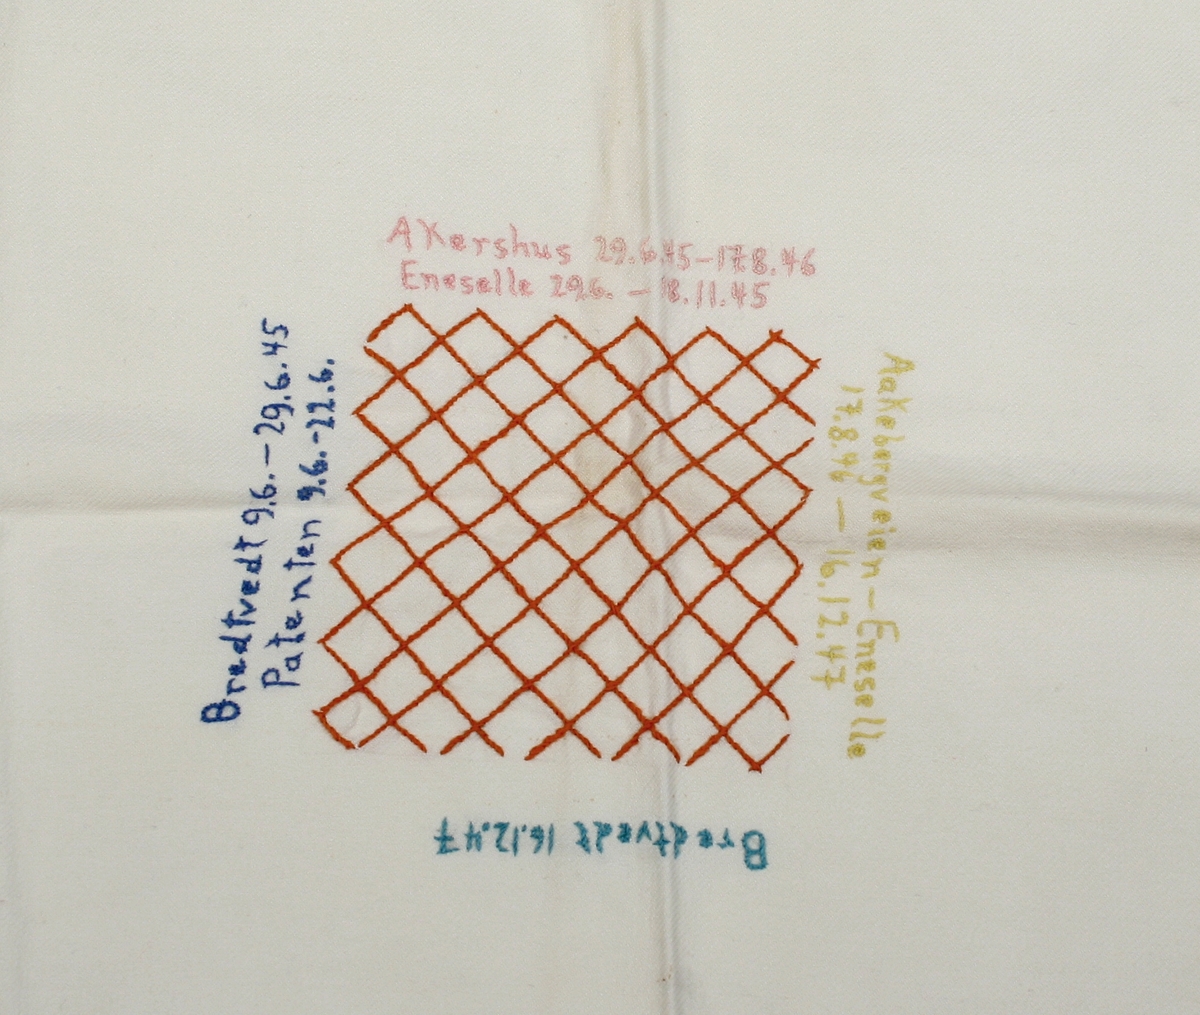 Akershus 29.6.45-17.8.46
Eneselle 29.6. - 8.11.45
Bredtvedt 9.6. - 29.6.45
Patenten 9.6.-22.6.
Aakebergveien - Eneselle
17.8.46 - 16.12.47
Bredtvedt 16.12.47